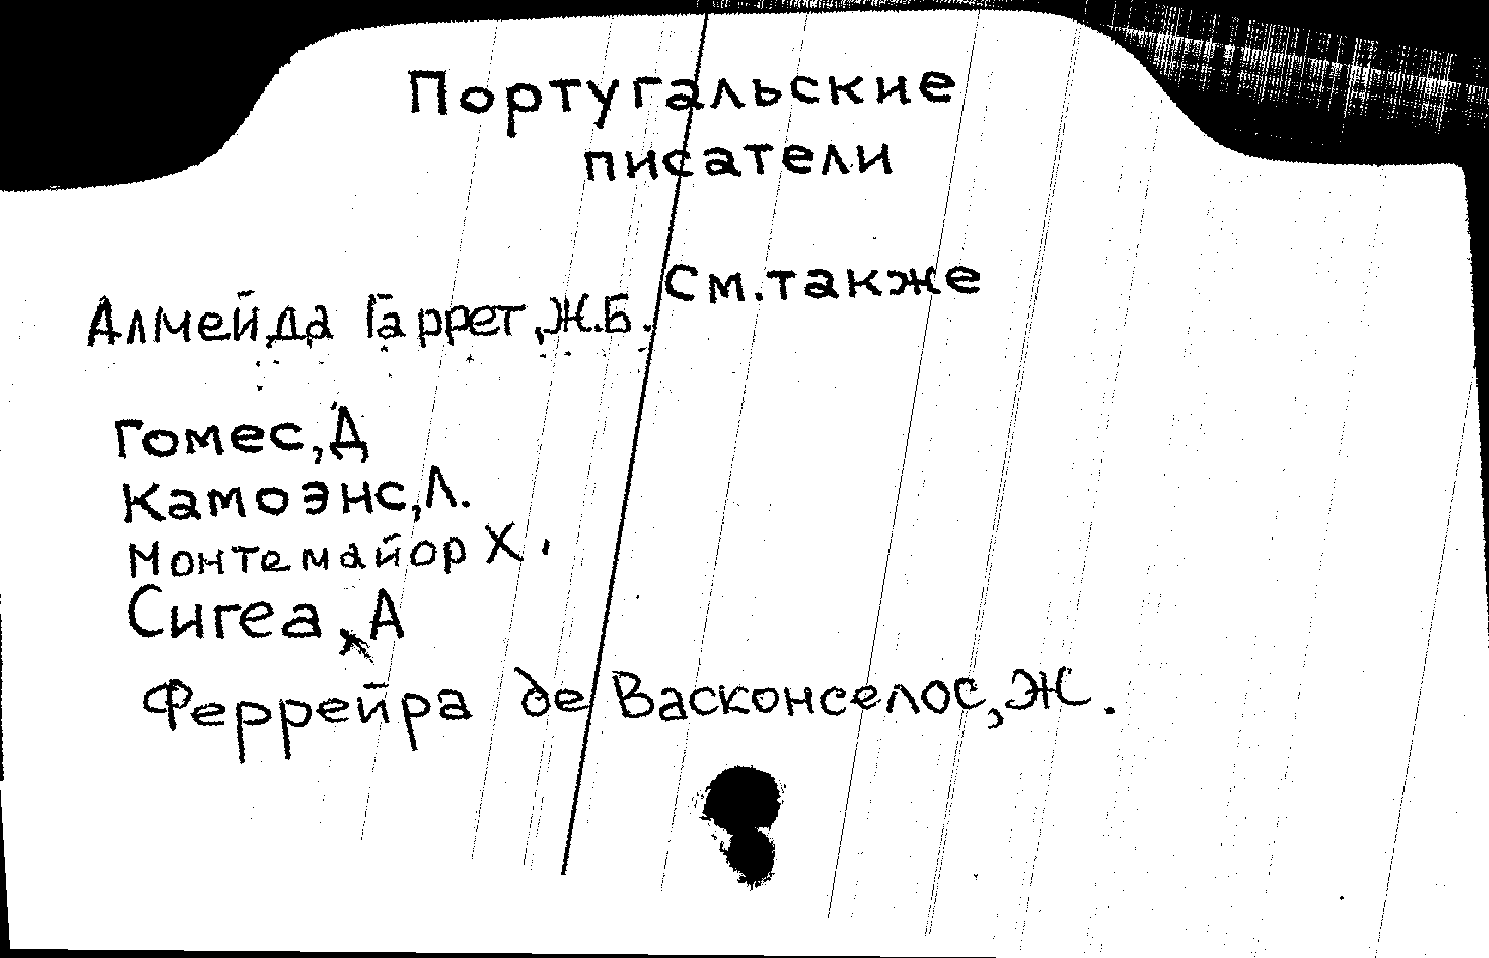 Португальские
писатели
См.также
Алмейда Гаррет,Ж.Б.
Гомес,Д
Камоэнс,Л.
Монтемайор Х.
Сигеа, А
Феррейра де Васконселос,Ж.